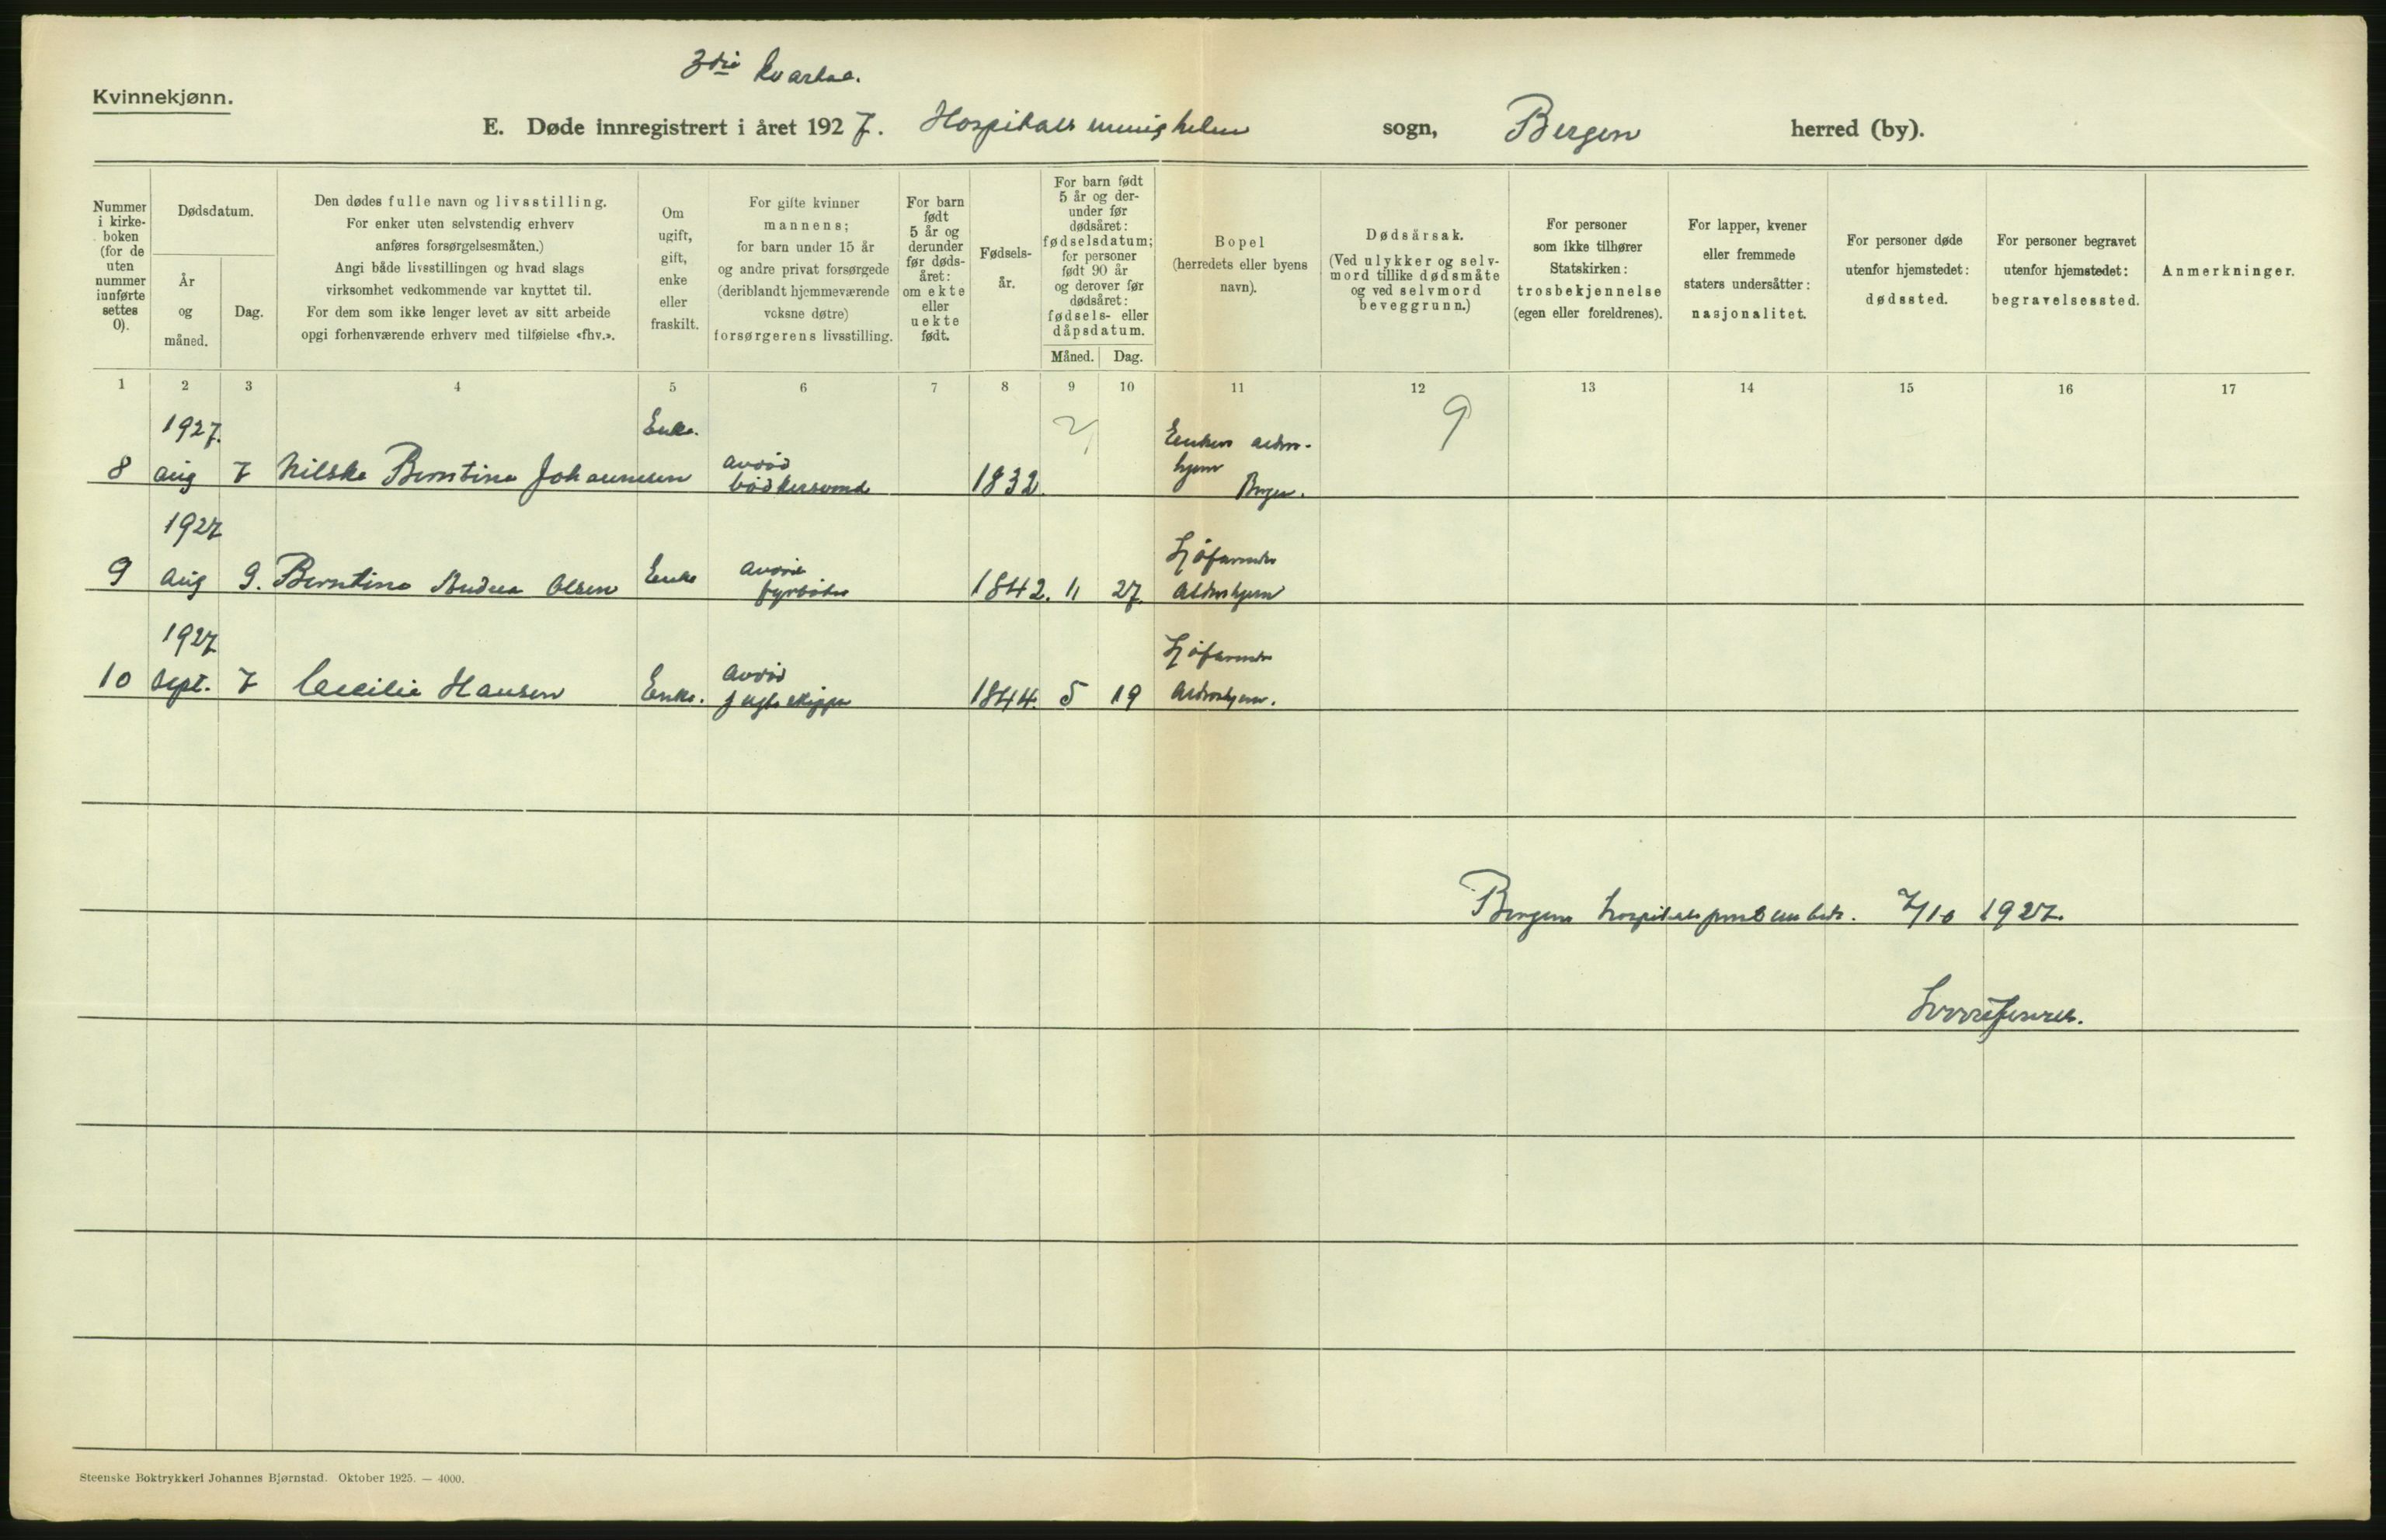 3die kvartal.
Kvinnekjønn.
E. Døde innregistrert i året 1927. Hospitals menigheten sogn, Bergen herred (by).
Nummer i kirke- boken (for de uten nummer innførte settes 0).
Dødsdatum.
År og måned.
Dag.
Den dødes fulle navn og livsstilling.
For enker uten selvstendig erhverv
anføres forsørgelsesmåten.)
Angi både livsstillingen og hvad slags
virksomhet vedkommende var knyttet til.
For dem som ikke lenger levet av sitt arbeide
opgi forhenværende erhverv med tilføielse «fhv.».
Om ugift, gift, enke eller fraskilt.
For gifte kvinner
mannens;
for barn under 15 år
og andre privat forsørgede
(deriblandt hjemmeværende
voksne døtre)
forsørgerens livsstilling.
For barn født 5 år og derunder før døds- året: om ekte eller uekte født.
Fødsels- år.
For barn født
5 år og der-
under før
dødsåret:
fødselsdatum;
for personer
født 90 år
og derover før
dødsåret:
fødsels- eller
dåpsdatum.
Måned. Dag.
Bopel
(herredets eller byens
navn).
Dødsårsak.
(Ved ulykker og selv-
mord tillike dødsmåte
og ved selvmord
beveggrunn.)
For personer
som ikke tilhører
Statskirken:
trosbekjennelse
(egen eller foreldrenes).
For lapper, kvener
eller fremmede
staters undersåtter:
nasjonalitet.
For personer døde
utenfor hjemstedet:
dødssted.
For personer begravet
utenfor hjemstedet:
begravelsessted.
Anmerkninger.
1 2 3 4 5 6 7 8 9 10 11 12 13 14 15 16 17
1927. Enke. 9
8 aug 7 Nilska Berntine Johannesen avdød bødkersvend 1832. Enkers alders- hjem Bergen.
1927
9 aug 9. Berntine Andrea Olsen Enke avdød fyrbøter 1842. 11 27. Sjøfarendes Aldershjem
1927
10 sept. 7 Cecilie Hansen Enke. avdød jagtskipper 1844. 5 19 Sjøfarendes Aldershjem.
Bergens hospitalsprestembede. 7/10 1927.
Steenske Boktrykkeri Johannes Bjørnstad. Oktober 1925. — 4000.